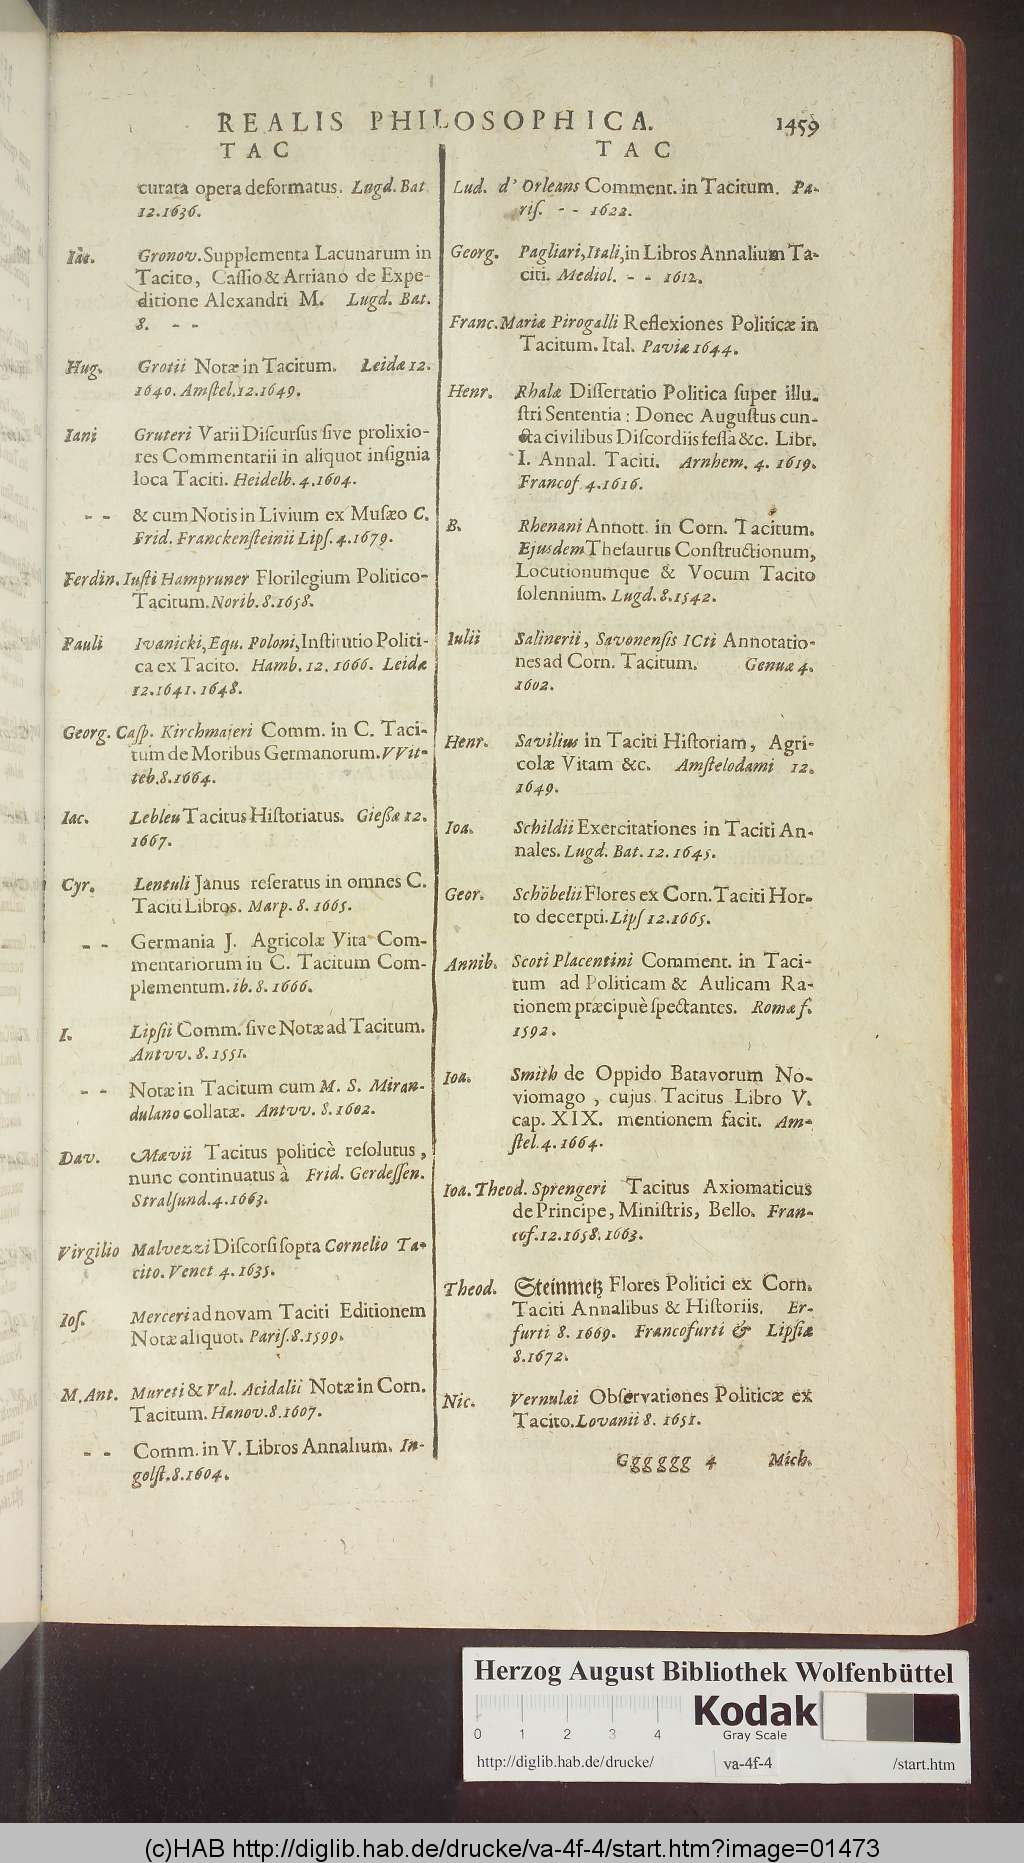 REALIS PHILOSOPHICA. 1459
TAC
curata opera deformatus. Lugd. Bat
12.1636.
Iac. Gronov. Supplementa Lacunarum in
Tacito, Caſſio & Arriano de Expe-
ditione Alexandri M. Lugd. Bat.
8. - -
Hug. Grotii Notæ in Tacitum. Leidæ 12.
1640. Amſtel. 12. 1649.
Iani Gruteri Varii Diſcurſus ſive prolixio-
res Commentarii in aliquot inſignia
loca Taciti. Heidelb. 4. 1604.
- - & cum Notis in Livium ex Muſæo C.
Frid. Franckenſteinii Lipſ. 4. 1679.
Ferdin. Iuſti Hampruner Florilegium Politico-
Tacitum. Norib. 8. 1658.
Pauli Ivanicki, Equ. Poloni, Inſtitutio Politi-
ca ex Tacito. Hamb. 12. 1666. Leidæ
12. 1641. 1648.
Georg. Caſp. Kirchmajeri Comm. in C. Taci-
tum de Moribus Germanorum. VVit-
teb. 8. 1664.
Iac. Lebleu Tacitus Hiſtoriatus. Gieſsæ 12.
1667.
Cyr. Lentuli Janus reſeratus in omnes C.
Taciti Libros. Marp. 8. 1665.
- - Germania J. Agricolæ Vita Com-
mentariorum in C. Tacitum Com-
plementum. ib. 8. 1666.
I. Lipſii Comm. ſive Notæ ad Tacitum.
Antvv. 8. 1551.
- - Notæ in Tacitum cum M. S. Miran-
dulano collatæ. Antvv. 8. 1602.
Dav. Mævii Tacitus politicè reſolutus,
nunc continuatus à Frid. Gerdeſſen.
Stralſund. 4. 1663.
Virgilio Malvezzi Diſcorſi ſopra Cornelio Ta-
cito. Venet 4. 1635.
Ioſ. Merceri ad novam Taciti Editionem
Notæ aliquot. Pariſ. 8. 1599.
M. Ant. Mureti & Val. Acidalii Notæ in Corn.
Tacitum. Hanov. 8. 1607.
- - Comm. in V. Libros Annalium. In-
golſt. 8. 1604.
TAC
Lud. d'Orleans Comment. in Tacitum. Pa-
riſ. - - 1622.
Georg. Pagliari, Itali, in Libros Annalium Ta-
citi. Mediol. - - 1612.
Franc. Mariæ Pirogalli Reflexiones Politicæ in
Tacitum. Ital. Paviæ 1644.
Henr. Rhalæ Diſſertatio Politica ſuper illu-
ſtri Sententia: Donec Auguſtus cun-
cta civilibus Diſcordiis feſſa &c. Libr.
I. Annal. Taciti. Arnhem. 4. 1619.
Francof 4. 1616.
B. Rhenani Annott. in Corn. Tacitum.
Ejusdem Theſaurus Conſtructionum,
Locutionumque & Vocum Tacito
ſolennium. Lugd. 8. 1542.
Iulii Salinerii, Savonenſis ICti Annotatio-
nes ad Corn. Tacitum. Genuæ 4.
1602.
Henr. Savilius in Taciti Hiſtoriam, Agri-
colæ Vitam &c. Amſtelodami 12.
1649.
Ioa. Schildii Exercitationes in Taciti An-
nales. Lugd. Bat. 12. 1645.
Geor. Schöbelii Flores ex Corn. Taciti Hor-
to decerpti. Lipſ 12. 1665.
Annib. Scoti Placentini Comment. in Taci-
tum ad Politicam & Aulicam Ra-
tionem præcipuè ſpectantes. Romæ f.
1592.
Ioa. Smith de Oppido Batavorum No-
viomago, cujus Tacitus Libro V.
cap. XIX. mentionem facit. Am-
ſtel. 4. 1664.
Ioa. Theod. Sprengeri Tacitus Axiomaticus
de Principe, Miniſtris, Bello. Fran-
cof. 12. 1658. 1663.
Theod. Steinmetz Flores Politici ex Corn.
Taciti Annalibus & Hiſtoriis. Er-
furti 8. 1669. Francofurti & Lipſiæ
8. 1672.
Nic. Vernulæi Obſervationes Politicæ ex
Tacito. Lovanii 8. 1651.
Ggg ggg 4 Mich.
Herzog August Bibliothek Wolfenbüttel
0 1 2 3 4
Kodak
Gray Scale
http://diglib.hab.de/drucke/ va-4f-4 /start.htm
(c)HAB http://diglib.hab.de/drucke/va-4f-4/start.htm?image=01473